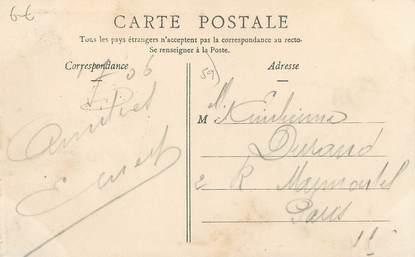 66
CARTE POSTALE
Tous les pays étrangers n'acceptent pas la correspondance au recto-
Se renseigner à la Poste.
Correspondance
Adresse
06
59
M
Amitiés
Durand
R
Ernest
Paris